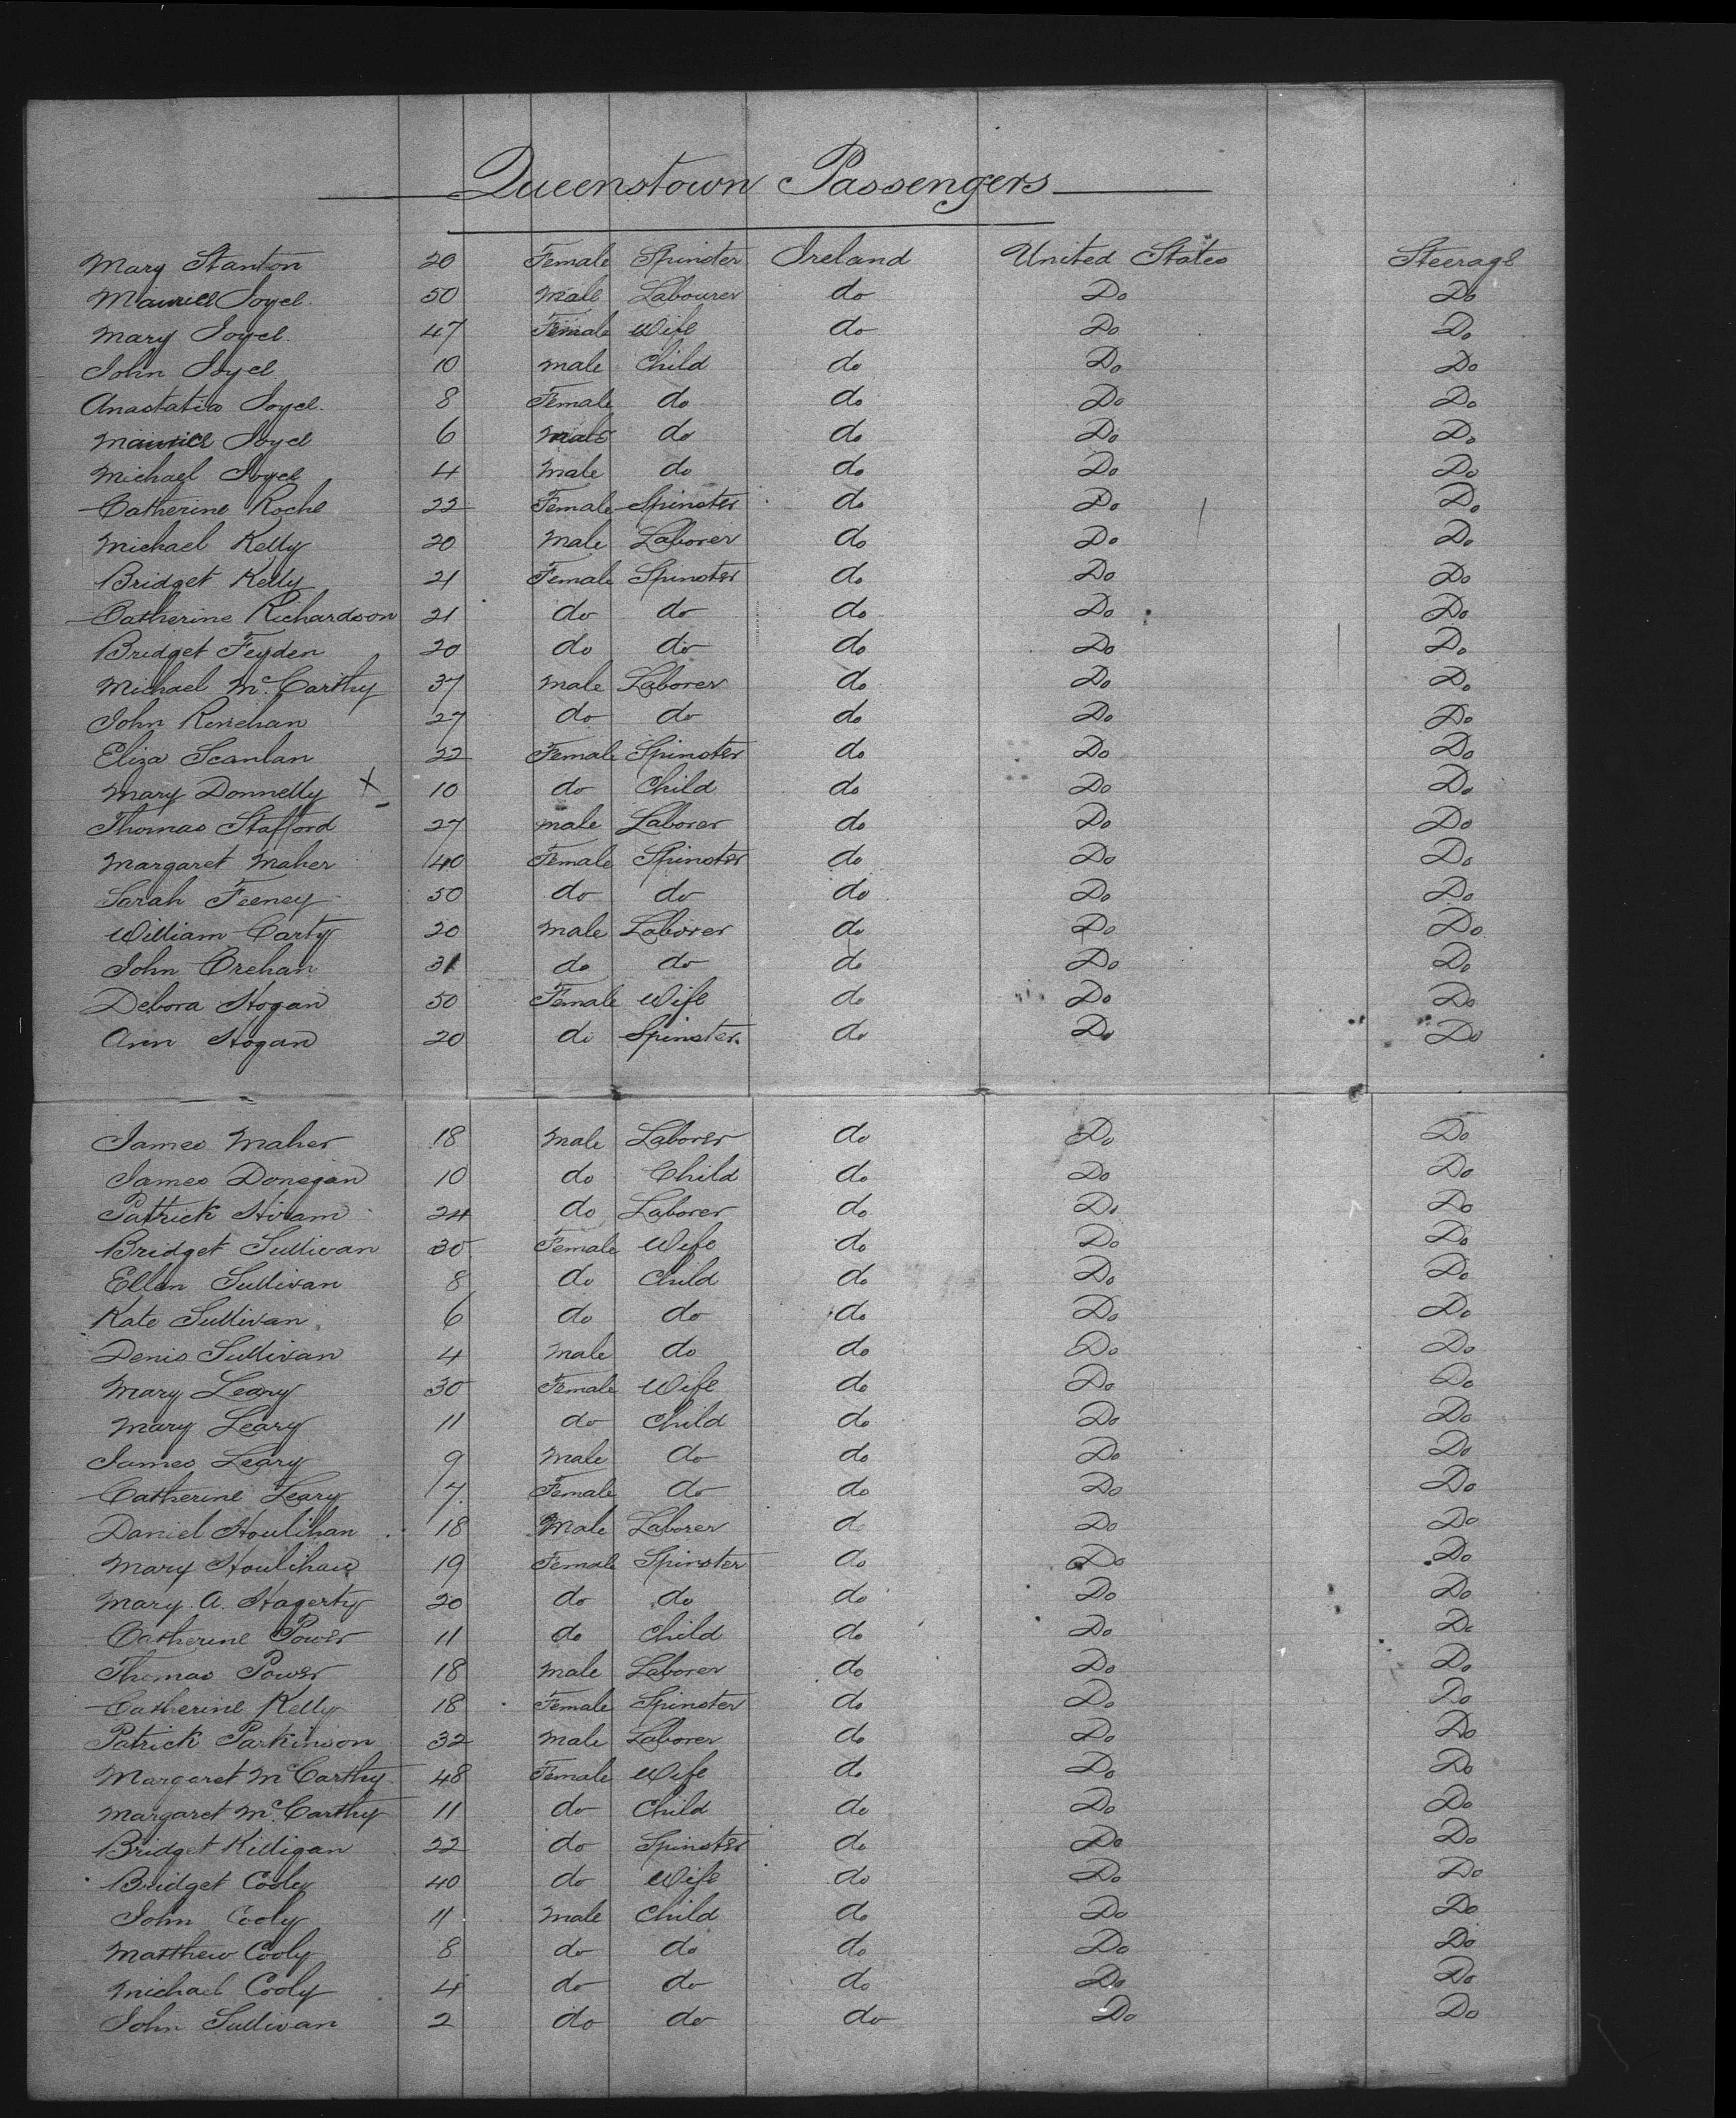 Queenstown Passengers
Mary Stanton 20 Female Spinster Ireland United States Steerage
Maurice Joyce 50 Male Labourer do Do Do
Mary Joyce 47 Female Wife do Do Do
John Joyce 10 Male Child do Do Do
Anastatia Joyce 8 Female do do Do Do
Maurice Joyce 6 Male do do Do Do
Michael Joyce 4 Male do do Do Do
Catherine Roche 22 Female Spinster do Do Do
Michael Kelly 20 Male Laborer do Do Do
Bridget Kelly 21 Female Spinster do Do Do
Catherine Richardson 21 do do do Do Do
Bridget Feyden 20 do do do Do Do
Michael McCarthy 37 Male Laborer do Do Do
John Renehan 27 do do do Do Do
Eliza Scanlan 22 Female Spinster do Do Do
Mary Donnelly X 10 do Child do Do Do
Thomas Stafford 27 Male Laborer do Do Do
Margaret Maher 40 Female Spinster do Do Do
Sarah Feeney 50 do do do Do Do
William Carty 20 Male Laborer do Do Do
John Crehan 31 do do do Do Do
Debora Hogan 50 Female Wife do Do Do
Ann Hogan 20 do Spinster do Do Do
James Maher 18 Male Laborer do Do Do
James Donegan 10 do Child do Do Do
Patrick Hiram 24 do Laborer do Do Do
Bridget Sullivan 30 Female Wife do Do Do
Ellen Sullivan 8 do Child do Do Do
Kate Sullivan 6 do do do Do Do
Denis Sullivan 4 Male do do Do Do
Mary Leary 30 Female Wife do Do Do
Mary Leary 11 do Child do Do Do
James Leary 9 Male do do Do Do
Catherine Leary 7 Female do do Do Do
Daniel Houlihan 18 Male Laborer do Do Do
Mary Houlihan 19 Female Spinster do Do Do
Mary A. Hagerty 20 do do do Do Do
Catherine Power 11 do Child do Do Do
Thomas Power 18 Male Laborer do Do Do
Catherine Kelly 18 Female Spinster do Do Do
Patrick Parkinson 32 Male Laborer do Do Do
Margaret McCarthy 48 Female Wife do Do Do
Margaret McCarthy 11 do Child do Do Do
Bridget Killigan 22 do Spinster do Do Do
Bridget Cooly 40 do Wife do Do Do
John Cooly 11 Male Child do Do Do
Matthew Cooly 8 do do do Do Do
Michael Cooly 4 do do do Do Do
John Sullivan 2 do do do Do Do